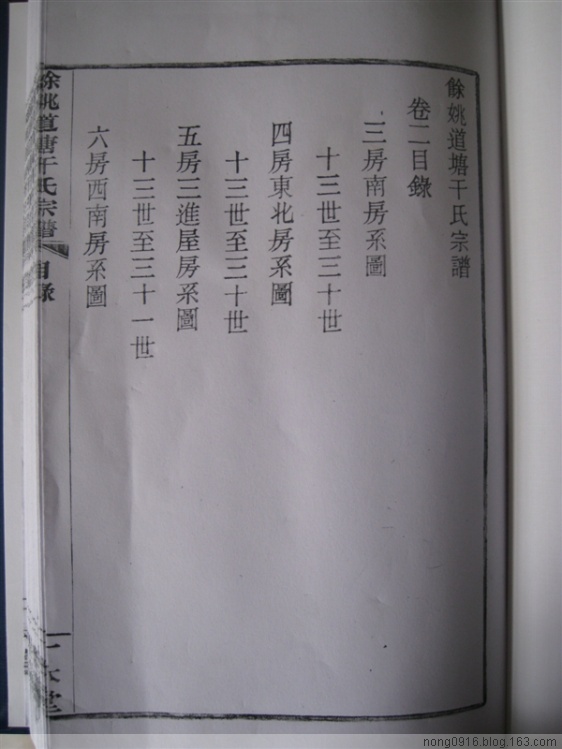 餘姚道塘干氏宗譜
卷二目錄
三房南房系圖
十三世至三十世
四房東北房系圖
十三世至三十世
五房三進屋房系圖
十三世至三十一世
六房西南房系圖
餘姚道塘干氏宗譜
目錄
nong0916.blog.163.com